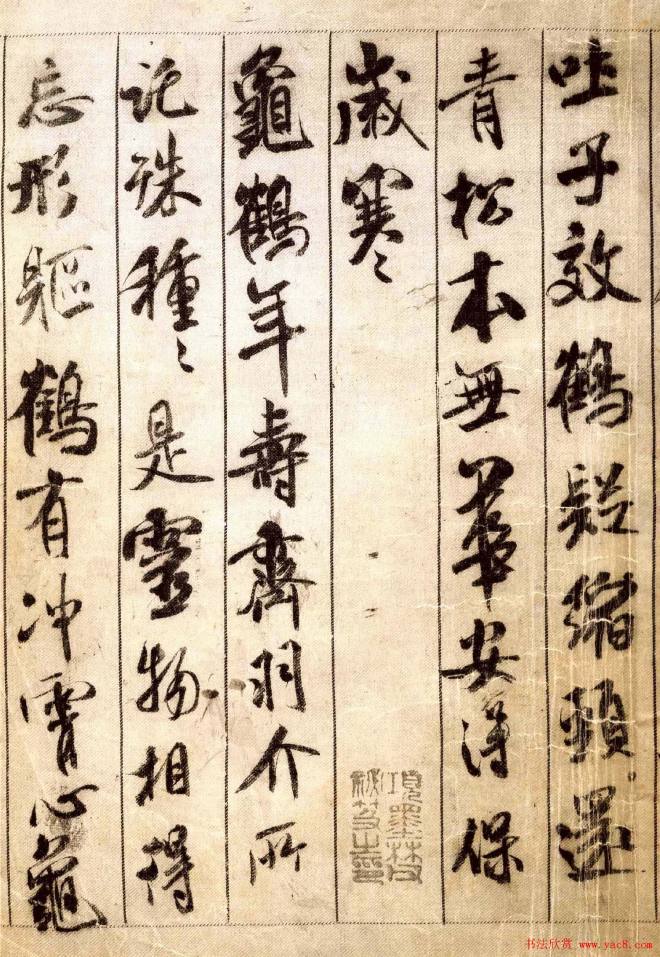 吐子效鶴疑縮頸還
青松本無華安得保
歲寒〻
龜鶴年壽齊羽介所
託殊種〻是靈物相得
忘形軀鶴有冲霄心龜
項墨林
秘笈之印
书法欣赏 www.yac8.com